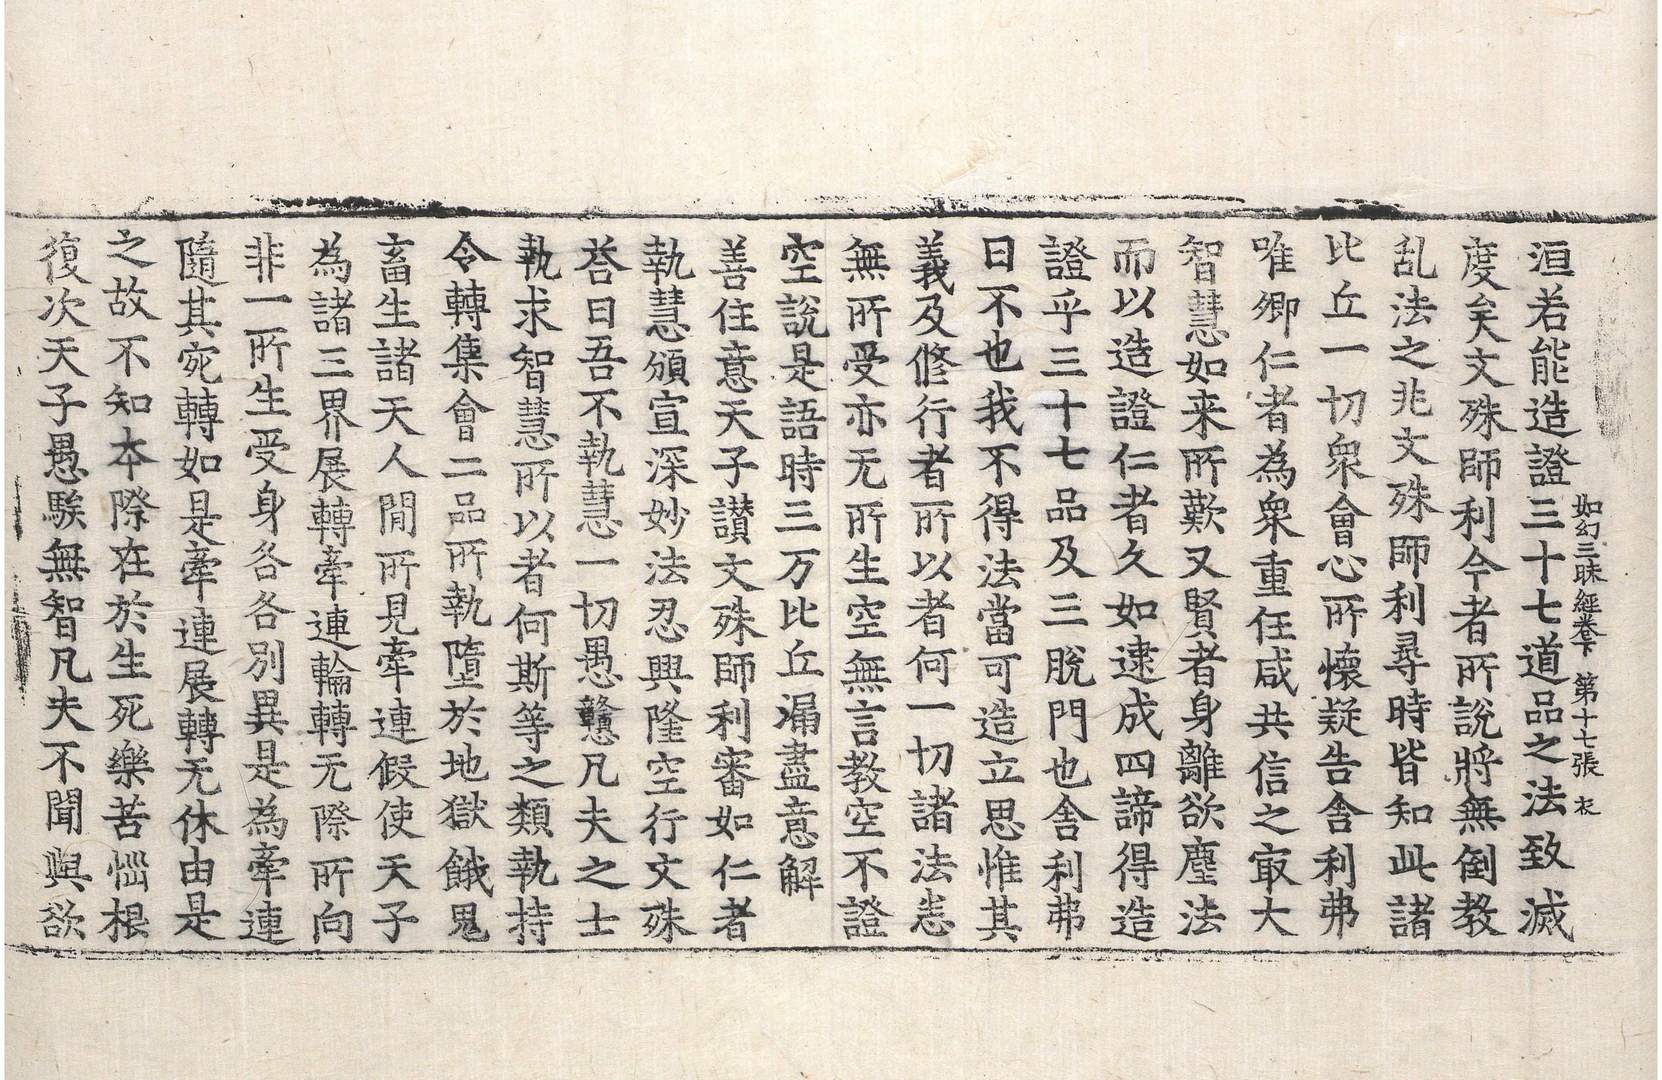 如幻三昧經卷下　第十七張　衣
洹若能造證三十七道品之法致滅
度矣文殊師利今者所說將無倒教
乱法之兆文殊師利尋時皆知此諸
比丘一切衆會心所懷疑告舍利弗
唯卿仁者為衆重任咸共信之㝡大
智慧如来所歎又賢者身離欲塵法
而以造證仁者久如逮成四諦得造
證乎三十七品及三脫門也舍利弗
曰不也我不得法當可造立思惟其
義及修行者所以者何一切諸法悉
無所受亦无所生空無言教空不證
空說是語時三万比丘漏盡意解
善住意天子讃文殊師利審如仁者
執慧頒宣深妙法忍興隆空行文殊
荅曰吾不執慧一切愚戇凡夫之士
執求智慧所以者何斯等之類執持
令轉集會二品所執墮於地獄餓鬼
畜生諸天人閒所見牽連假使天子
為諸三界展轉牽連輪轉无際所向
非一所生受身各各別異是為牽連
隨其宛轉如是牽連展轉无休由是
之故不知本際在於生死樂苦惱根
復次天子愚騃無智凡夫不聞與欲